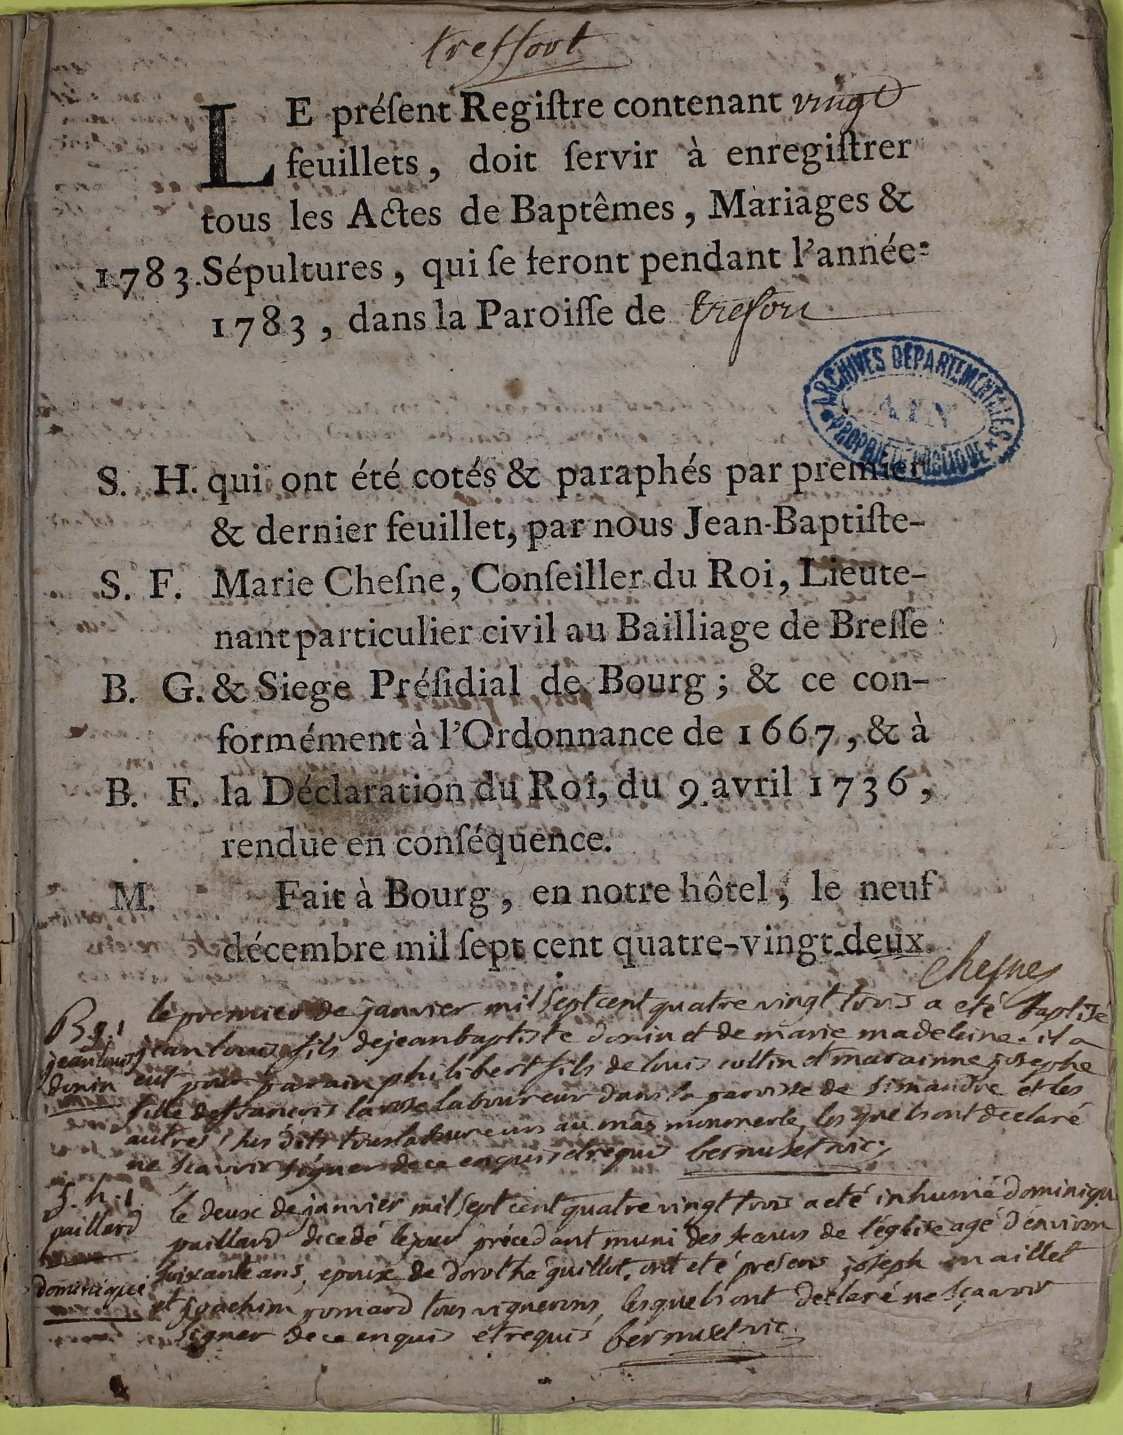 treffort
LE préſent Regiſtre contenant vingt
feuillets, doit ſervir à enregiſtrer
tous les Actes de Baptêmes, Mariages &
1783. Sépultures, qui ſe feront pendant l'année
1783, dans la Paroiſſe de trefort
ARCHIVES DÉPARTEMENTALES
AIN
PROPRIÉTÉ PUBLIQUE
S. H. qui ont été cotés & paraphés par premier
& dernier feuillet, par nous Jean-Baptiſte-
S. F. Marie Cheſne, Conſeiller du Roi, Lieute-
nant particulier civil au Bailliage de Breſſe
B. G. & Siege Préſidial de Bourg; & ce con-
formément à l'Ordonnance de 1667, & à
B. F. la Déclaration du Roi, du 9 avril 1736,
rendue en conſéquence.
M. Fait à Bourg, en notre hôtel, le neuf
décembre mil ſept cent quatre-vingt-deux.
Chesne
B g. 1
jean louis
donin
le premier de janvier mil sept cent quatre vingt trois a eté Baptisé
jean louis fils de jean baptiste donin et de marie madeleine. il a
eut pour parain philibert fils de louis collin et marainne josephe
fille de francois laboureur dans la paroisse de simandre et les
autres laboureurs au mas les quels ont declaré
ne sçavoir signer de ce enquis et requis bernuset vic;
S. h. 1
paillard
dominique
le deux de janvier mil sept cent quatre vingt trois a eté inhumé dominique
paillard decedé le jour précedant muni des sacrems de l'église agé d'environ
soixante ans, epoux de dorothé quillot, ont eté presens joseph maillet
et joachim romard tous vignerons, lesquels ont declaré ne sçavoir
signer de ce enquis et requis bernuset vic.